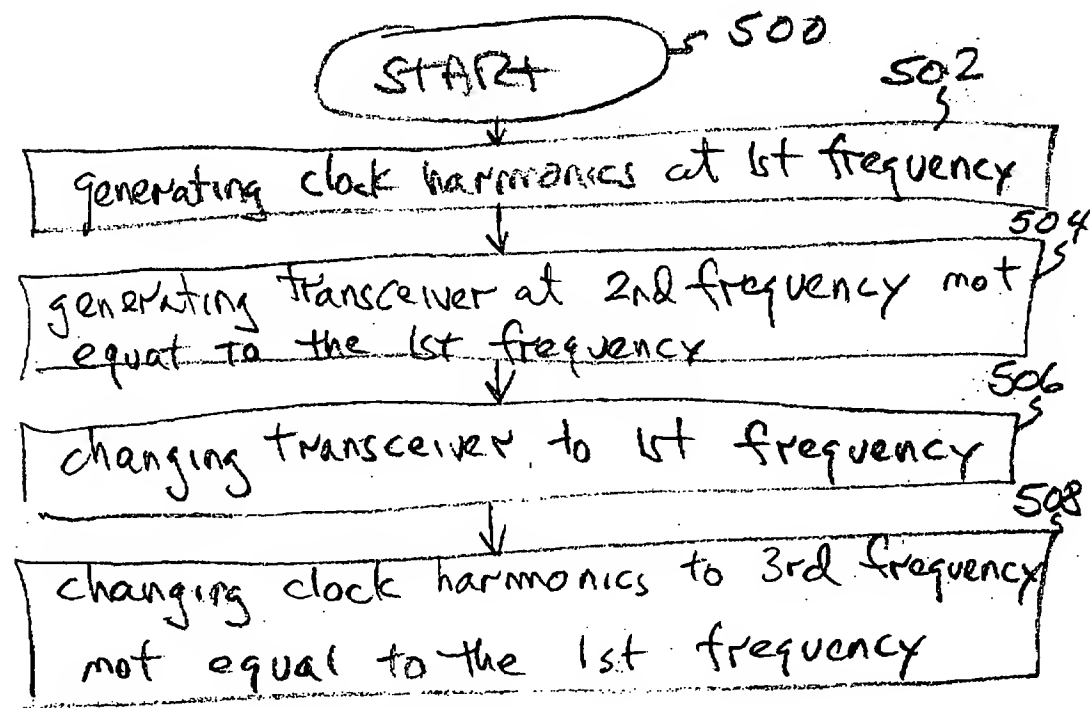 500
START
502
generating clock harmonics at 1st frequency
504
generating transceiver at 2nd frequency not
equal to the 1st frequency
506
changing transceiver to 1st frequency
508
changing clock harmonics to 3rd frequency
not equal to the 1st frequency